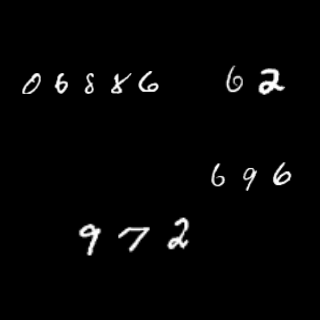 06886 62
696
972